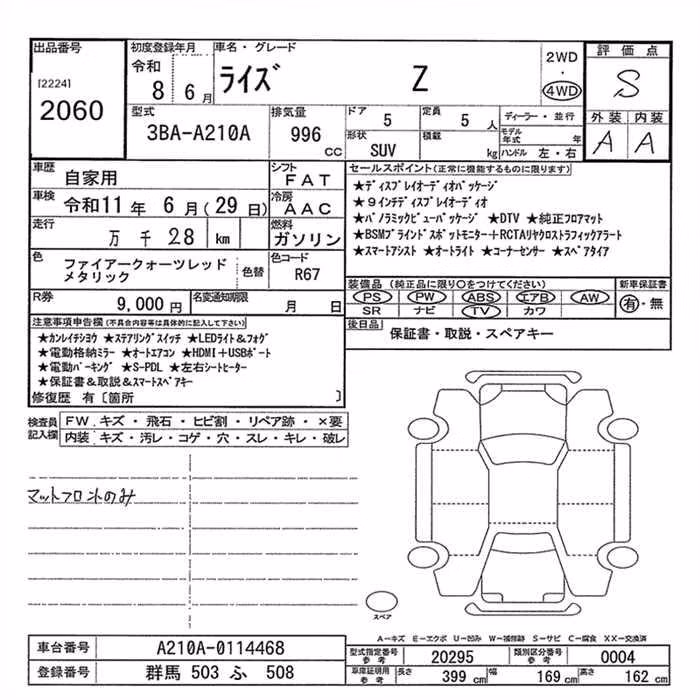 出品番号
[2224]
2060
初度登録年月
令和
8 6月
車名・グレード
ライズ Z
2WD
・
4WD
評価点
S
外装 内装
A A
型式
3BA-A210A
排気量
996
cc
ドア
5
定員
5 人
形状
SUV
積載
kg
ディーラー・並行
モデル年式 年
ハンドル 左・右
車歴
自家用
シフト
FAT
車検
令和11年 6月(29日)
冷房
AAC
走行
万 千 28 km
燃料
ガソリン
色
ファイアークォーツレッド
メタリック
色替
色コード
R67
R券
9,000円
名変通知期限
月 日
セールスポイント(正常に機能するものに限ります)
★ディスプレイオーディオパッケージ
★9インチディスプレイオーディオ
★パノラミックビューパッケージ ★DTV ★純正フロアマット
★BSMブラインドスポットモニター+RCTAリヤクロストラフィックアラート
★スマートアシスト ★オートライト ★コーナーセンサー ★スペアタイア
装備品 (純正品に限り○をつけてください)
PS PW ABS エアB AW
SR ナビ TV カワ
新車保証書
有・無
後日品
保証書・取説・スペアキー
注意事項申告欄(不具合内容等は具体的に記入して下さい)
★カンレイチシヨウ ★ステアリングスイッチ ★LEDライト&フォグ
★電動格納ミラー ★オートエアコン ★HDMI+USBポート
★電動パーキング ★S-PDL ★左右シートヒーター
★保証書&取説&スマートスペアキー
修復歴 有〔箇所 〕
検査員
記入欄
FW.キズ・飛石・ヒビ割・リペア跡・×要
内装・キズ・汚レ・コゲ・穴・スレ・キレ・破レ
マットフロントのみ
スペア
A-キズ E-エクボ U-凹み W-補修跡 S-サビ C-腐食 XX-交換済
車台番号
A210A-0114468
登録番号
群馬 503 ふ 508
型式指定番号
参考
20295
類別区分番号
参考
0004
車庫証明用
参考
長さ 399 cm 幅 169 cm 高さ 162 cm